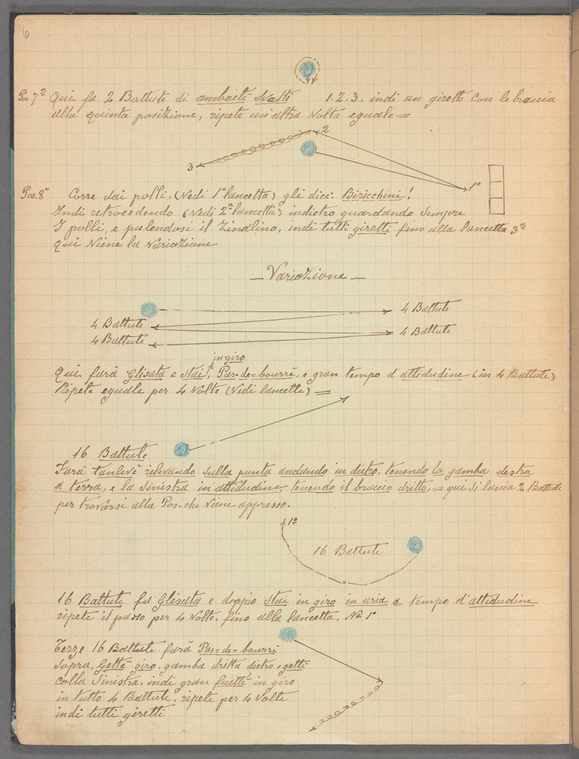 6
Pos. 7ª Qui fà 2 Battute di ambuetè 1. 2. 3. indi un giretto con le braccia
alla quinta posizione, ripete un'altra volta eguale =
2
3
1º
Pos. 8ª Corre dai polli. (Vedi 1ª lancetta) gli dice: Birichini!
Indi retrocedendo (Vedi 2ª lancetta) indietro guardando sempre
I polli, e pulendosi il Zindalino, indi tutti giretti fino alla lancetta 3ª
qui viene la Variazione
— Variazione —
4 Battute
4 Battute 4 Battute
4 Battute
in giro
Qui farà Glisata e Stai, Pas-de-bourrè, e gran tempo d'attidudine (in 4 Battute)
Ripete eguale per 4 Volte (Vedi lancette) =
16 Battute
Farà tanlevè rilevando sulla punta andando in dietro, tenendo la gamba destra
a terra, e la sinistra in attidudine, tenendo il braccio dritto, = qui si lascia 2 Battute
per trovarsi alla Pos. che viene appresso.
1º
16 Battute
16 Battute fa Glisata e doppio Stai in giro in aria e tempo d'attidudine
ripete il passo per 4 Volte, fino alla lancetta, Nº 1º
Terze 16 Battute farà Pas-de-bourrè
sopra, Gettè giro, gamba dritta dietro, gettè
colla Sinistra, indi gran fuettè in giro
in tutto 4 Battute, ripete per 4 Volte
indi tutti giretti